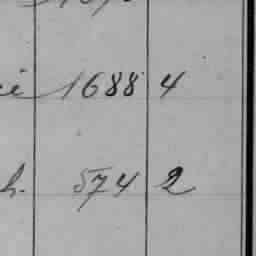 1688 4
h. 574 2